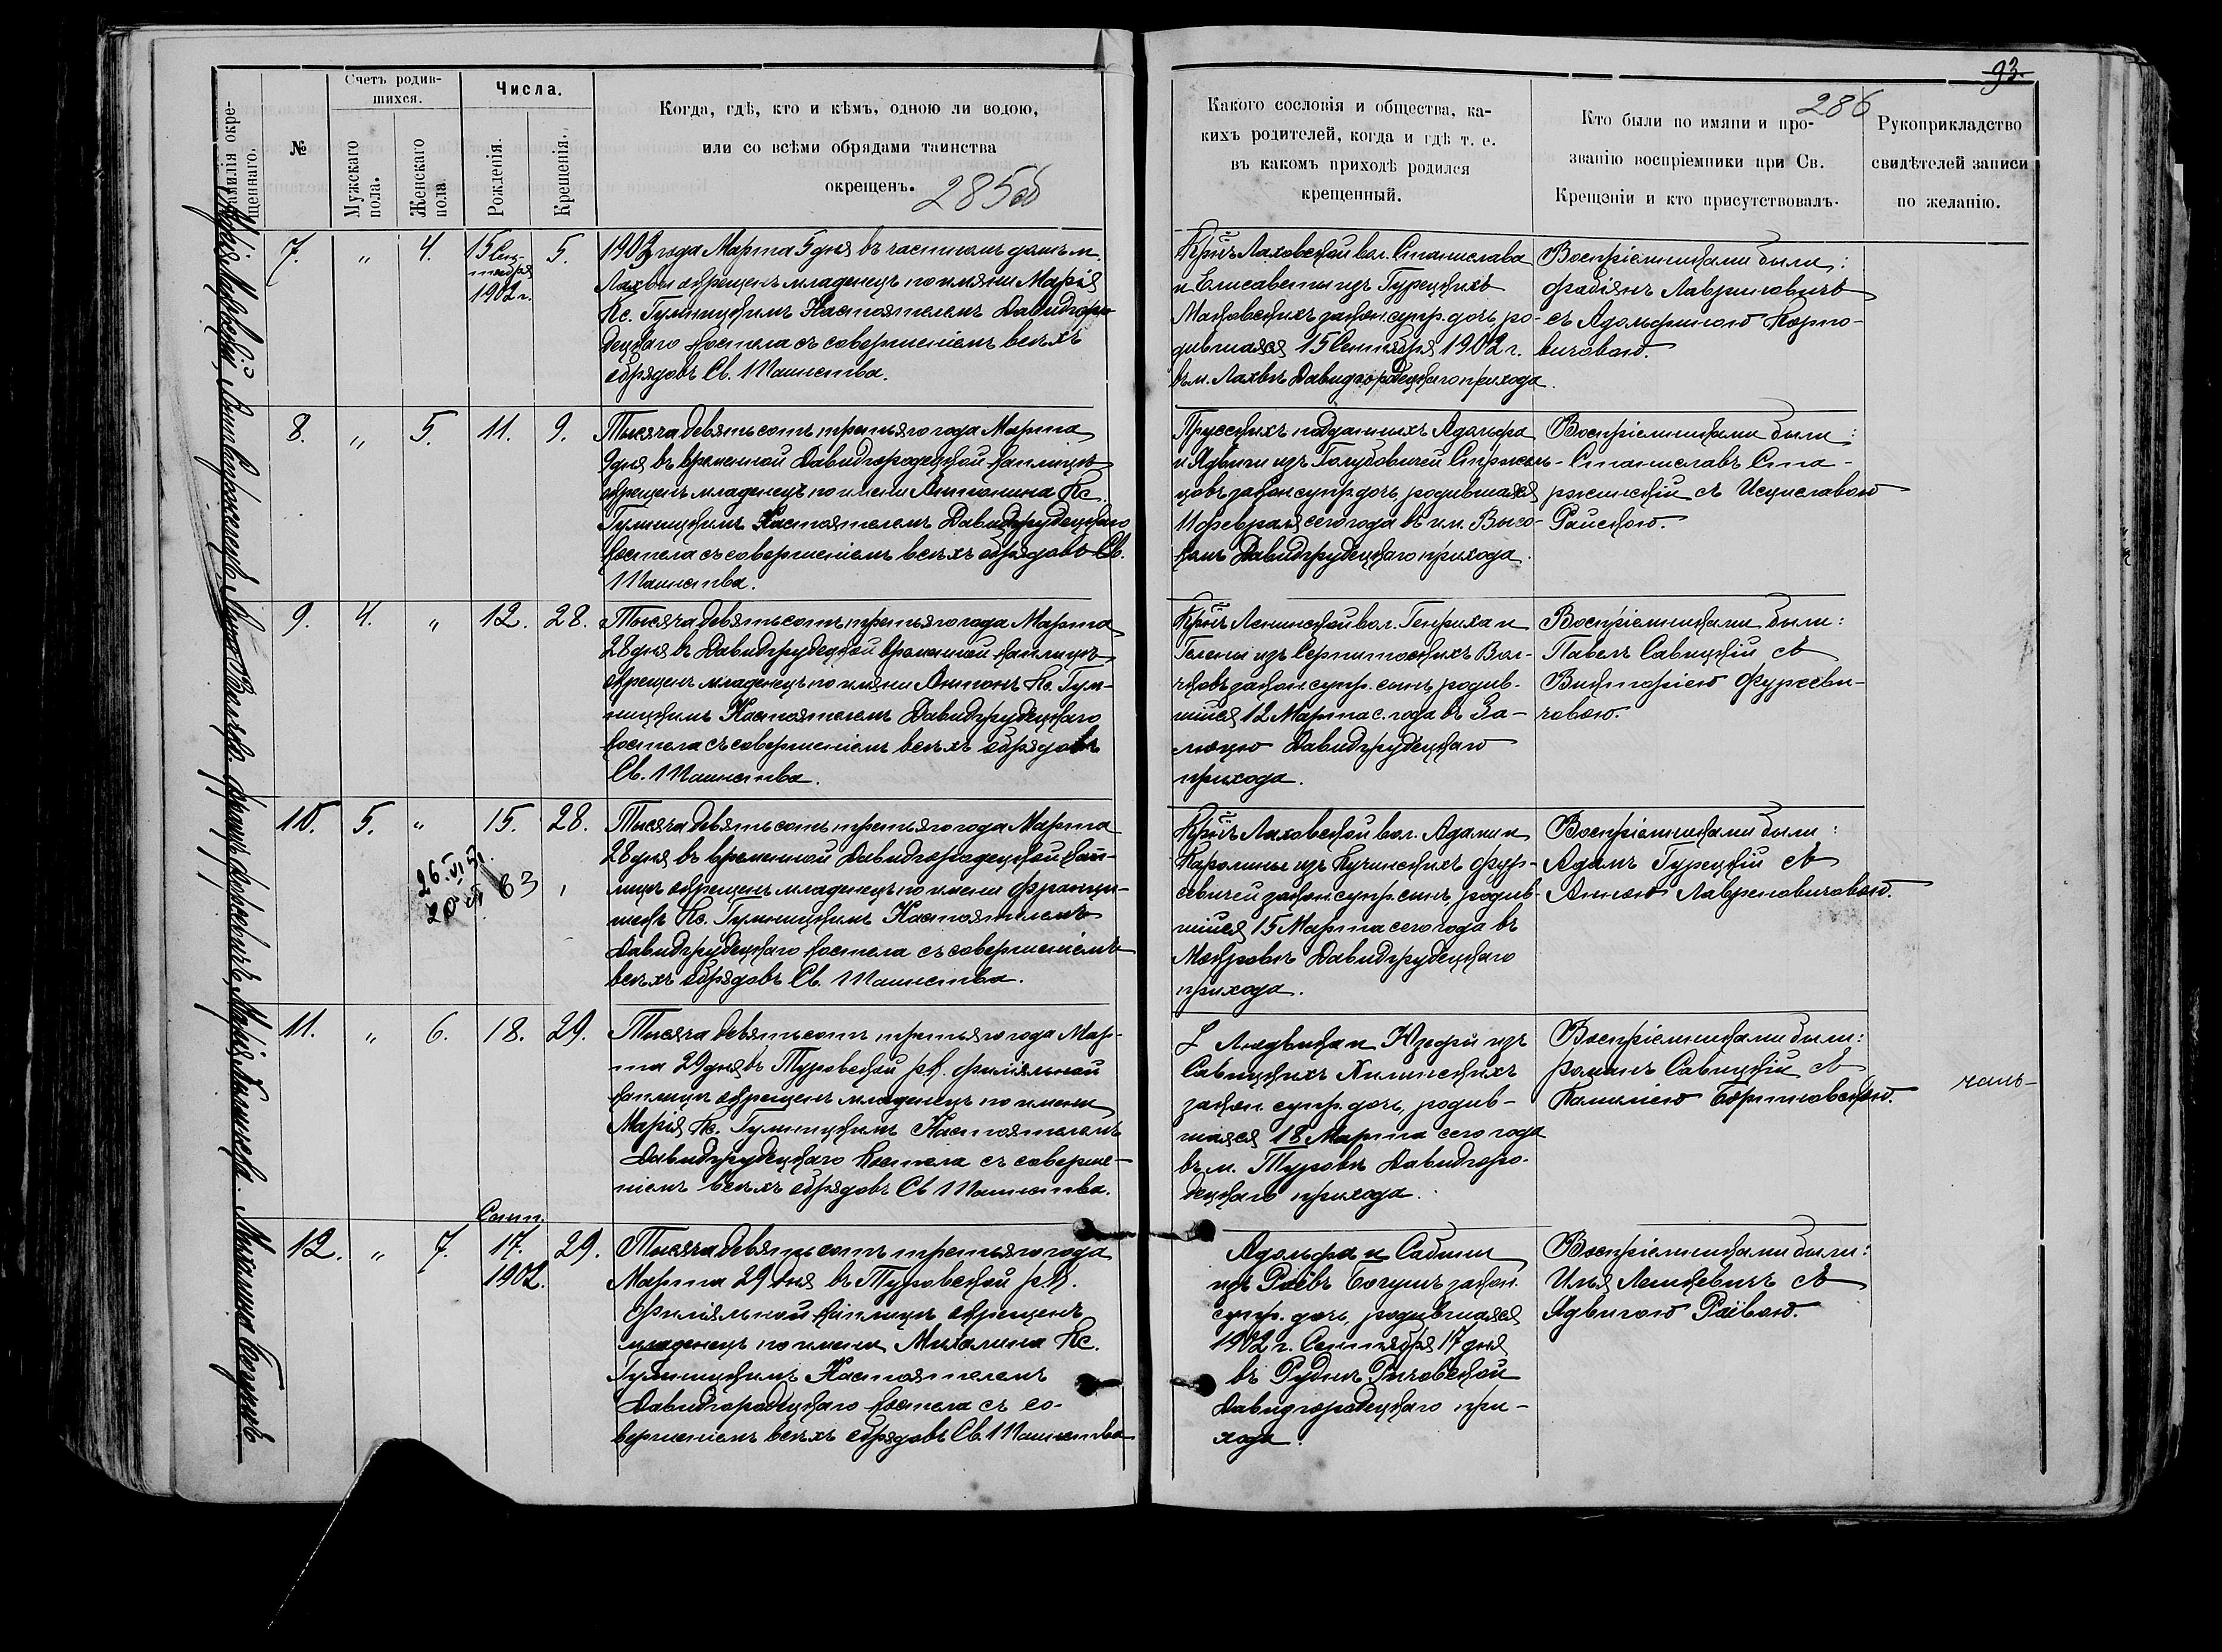 93.
286
285об
Фамилія окре-
щеннаго.
№
Счетъ родив-
шихся.
Мужскаго
пола.
Женскаго
пола.
Числа.
Рожденія.
Крещенія.
Когда, гдѣ, кто и кѣмъ, одною ли водою,
или со всѣми обрядами таинства
окрещенъ.
Какого сословія и общества, ка-
кихъ родителей, когда и гдѣ т. е.
въ какомъ приходѣ родился
крещенный.
Кто были по имяни и про-
званію воспріемники при Св.
Крещеніи и кто присутствовалъ.
Рукоприкладство
свидѣтелей записи
по желанію.
7. " 4. 15 Сен-
тября
1902 г. 5.
1903 года Марта 5 дня въ частномъ домѣ м.
Лахвы окрещенъ младенецъ по имяни Марія
Кс. Настоятелемъ Давидгоро-
децкаго костела съ совершеніемъ всѣхъ
обрядовъ Св. Таинства.
Кр̃нъ Лаховской вол. Станислава
и Елисаветы изъ Турецкихъ
Маковскихъ закон. супр. дочь, ро-
дившаяся 15 Сентября 1902 г.
въ м. Лахвѣ Давидгородецкаго прихода.
Воспріемниками были:
Фабіянъ Лавриновичъ
съ Адольфиною Корно-
вичовою.
8. " 5. 11. 9.
Тысяча девятьсотъ третьяго года Марта
9 дня въ временной Давидгородецкой каплицѣ
окрещенъ младенецъ по имени Антонина Кс.
Настоятелемъ Давидгрудецкаго
костела съ совершеніемъ всѣхъ обрядовъ Св.
Таинства.
Прусскихъ подданныхъ Адольфа
и Ядвиги изъ Голубовичей
закон. супр. дочь, родившаяся
11 февраля сего года въ им. Высо-
комъ Давидгрудецкаго прихода.
Воспріемниками были:
Станиславъ Ста-
ржинскій съ
Райскою.
9. 4. " 12. 28.
Тысяча девятьсотъ третьяго года Марта
28 дня въ Давидгрудецкой временной каплицѣ
окрещенъ младенецъ по имяни Антонъ Кс.
Настоятелемъ Давидгрудецкаго
костела съ совершеніемъ всѣхъ обрядовъ
Св. Таинства.
Кр̃нъ Ленинской вол. Генриха и
Гелены изъ Вол-
чковъ закон. супр. сынъ, родив-
шійся 12 Марта с. года въ За-
Давидгрудецкаго
прихода.
Воспріемниками были:
Павелъ Савицкій съ
Викторіею Фурсеви-
човою.
10. 5. " 15. 28.
26.VI
63
Тысяча девятьсотъ третьяго года Марта
28 дня въ временной Давидгородецкой кап-
лицѣ окрещенъ младенецъ по имени Франци-
шекъ Кс. Настоятелемъ
Давидгрудецкаго костела съ совершеніемъ
всѣхъ обрядовъ Св. Таинства.
Кр̃нъ Лаховской вол. Адама и
Каролины изъ Кучинскихъ Фур-
севичей закон. супр. сынъ, родив-
шійся 15 Марта сего года въ
Мокровѣ Давидгрудецкаго
прихода.
Воспріемниками были:
Адамъ Турецкій съ
Анною Лавреновичовою.
11. " 6. 18. 29.
Тысяча девятьсотъ третьяго года Мар-
та 29 дня въ Туровской р.к. филіяльной
каплицѣ окрещенъ младенецъ по имени
Марія Кс. Настоятелемъ
Давидгрудецкаго костела съ соверше-
ніемъ всѣхъ обрядовъ Св. Таинства.
Людвика и Юзефы изъ
Савицкихъ
закон. супр. дочь, родив-
шаяся 18 Марта сего года
въ м. Туровѣ Давидгоро-
децкаго прихода.
Воспріемниками были:
Романъ Савицкій съ
Камиліею Бортновскою.
12. " 7. Сент.
17.
1902. 29.
Тысяча девятьсотъ третьяго года
Марта 29 дня въ Туровской р.к.
филіяльной каплицѣ окрещенъ
младенецъ по имени Михалина Кс.
Настоятелемъ
Давидгородецкаго костела съ со-
вершеніемъ всѣхъ обрядовъ Св. Таинства
Адольфа и Сабины
изъ Раевъ Богушъ закон.
супр. дочь, родившаяся
1902 г. Сентября 17 дня
въ Руднѣ
Давидгородецкаго при-
хода.
Воспріемниками были:
Илья съ
Ядвигою Раевою.